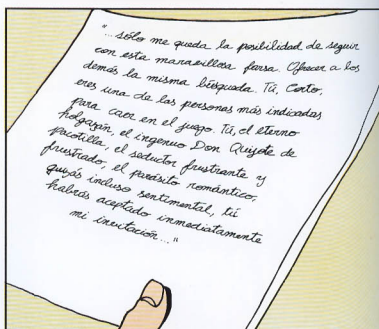 "...sólo me queda la posibilidad de seguir
con esta maravillosa farsa. Ofrecer a los
demás la misma búsqueda. Tú, Corto,
eres una de las personas más indicadas
para caer en el juego. Tú, el eterno
holgazán, el ingenuo Don Quijote de
pacotilla, el seductor frustrante y
frustrado, el parásito romántico,
quizás incluso sentimental, tú
habrás aceptado inmediatamente
mi invitación..."